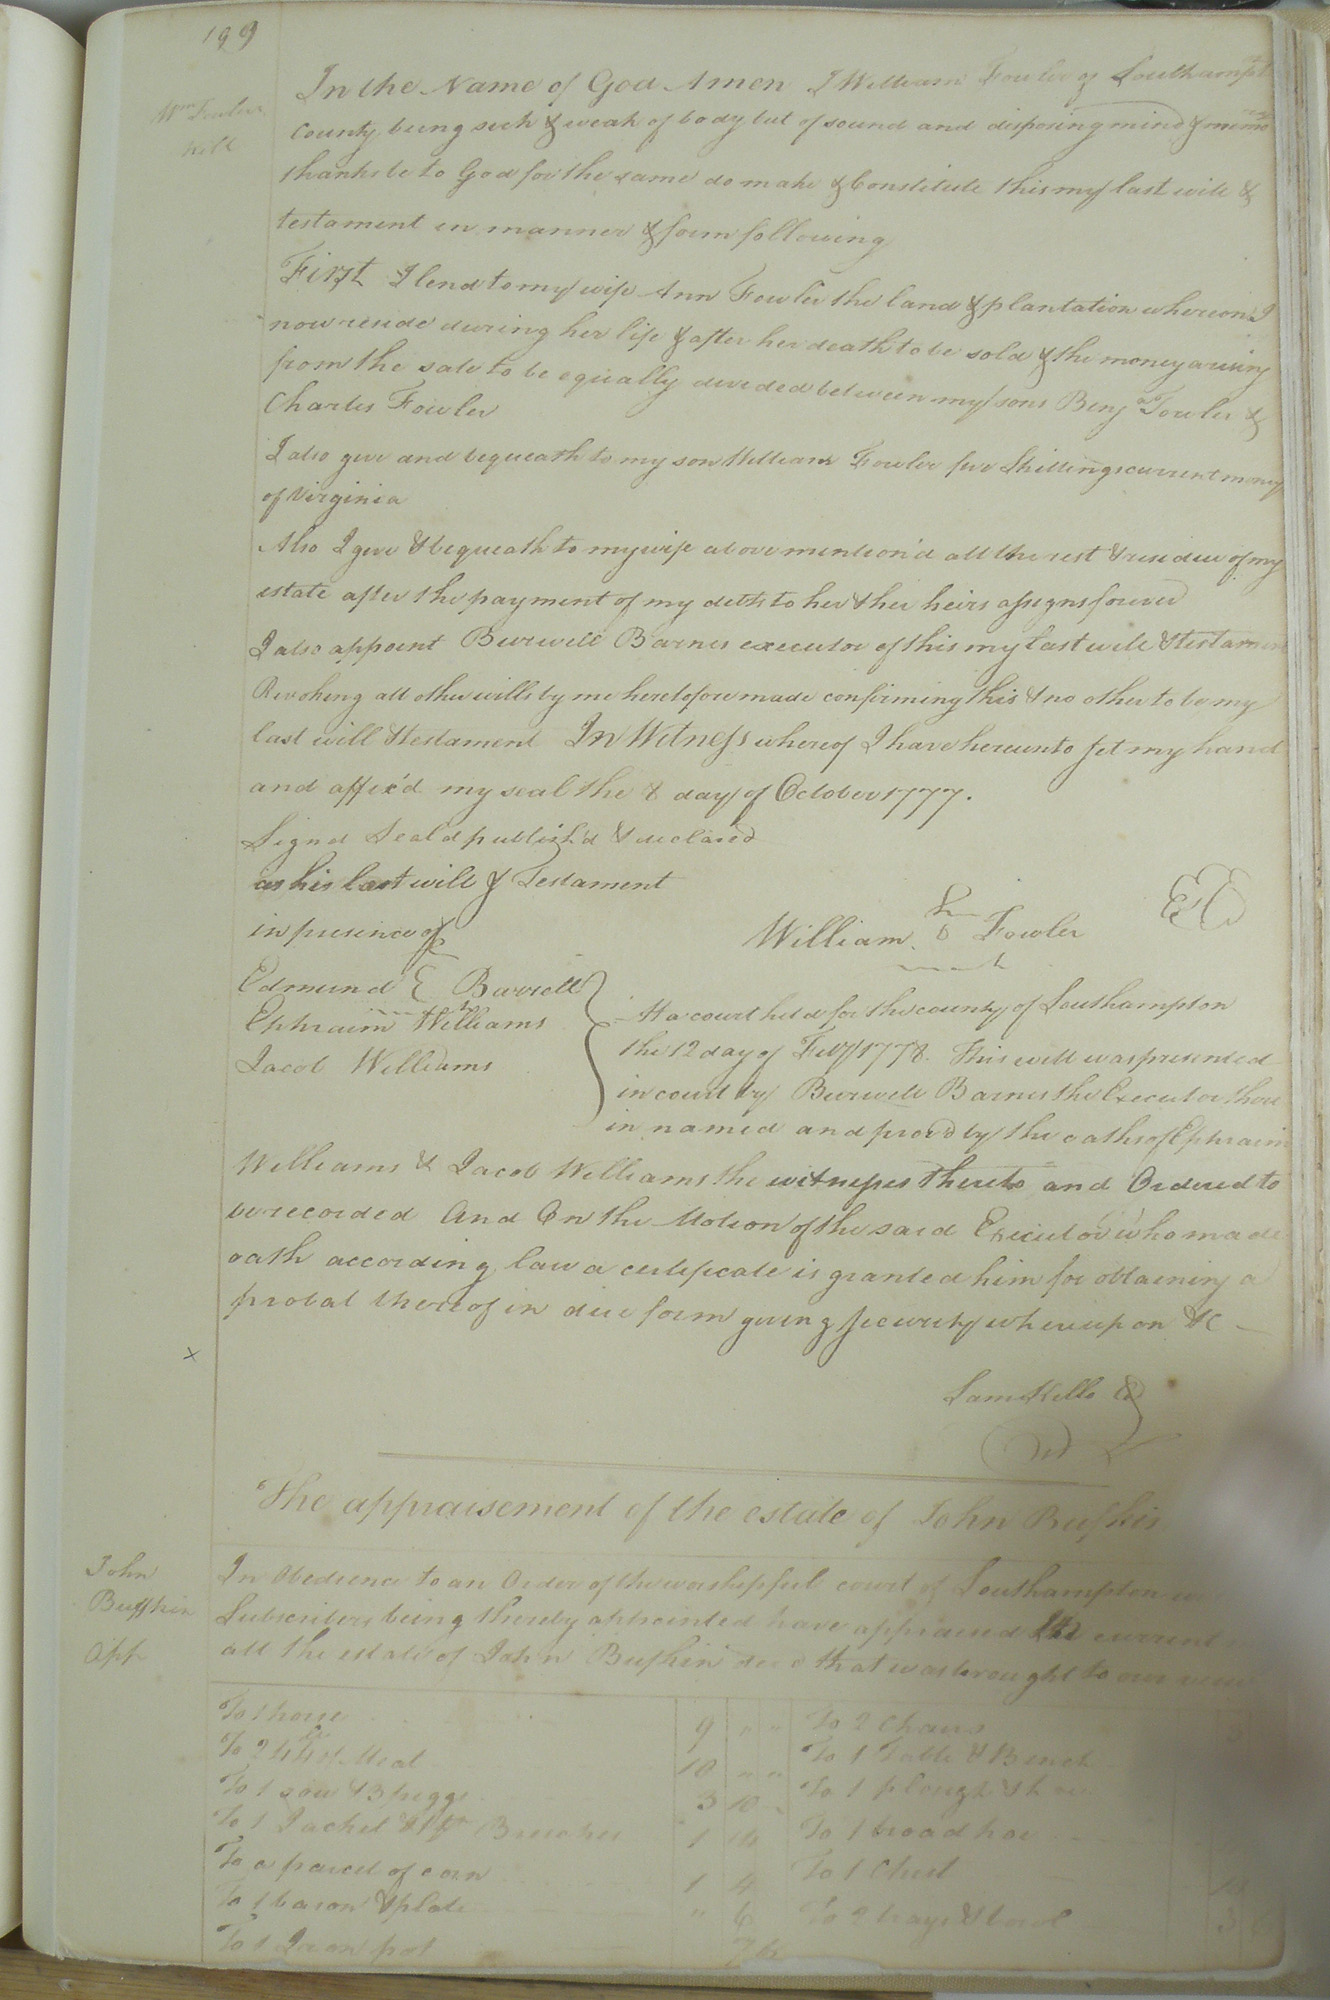 199
Wm Fowler
will
In the Name of God Amen I William Fowler of Southampt
County being sick & weak of body but of sound and disposing mind & memo
thanks be to God for the same do make & Constitute this my last will &
testament in manner & form following
First I lend to my wife Ann Fowler the land & plantation whereon I
now reside during her life & after her death to be sold & the money arising
from the sale to be equally devided between my sons Benja Fowler &
Charles Fowler
I also give and bequeath to my son William Fowler five Shillings current money
of Virginia
Also I give & bequeath to my wife above mention'd all the rest & residue of my
estate after the payment of my debts to her & her heirs assigns forever
I also appoint Burwell Barnes executor of this my last will & testament
Revoking all other wills by me heretofore made confirming this & no other to be my
last will & testament In Witness whereof I have hereunto set my hand
and affix'd my seal the 8 day of October 1777.
Signd Seald publish'd & declared
as his last will & Testament
in presence of
William Fowler
mark
Edmund E Barrell
Ephraim Williams
Jacob Williams
At a court held for the county of Southampton
the 12 day of Feby 1778. This will was presented
in court by Burwell Barnes the Executor there
in named and proved by the oaths of Ephraim
Williams & Jacob Williams the witnesses thereto and Ordered to
be recorded And On the Motion of the said Executor who made
oath according law a certificate is granted him for obtaining a
probat thereof in due form giving security whereupon &c
x
Sam Kello
The appraisement of the estate of John Bufkin
John
Buffkin
App
In Obedience to an Order of the worshipful court of Southampton we
Subscribers being thereby appointed have appraised in current
all the estate of John Bufkin decd that was brought to our view
To 1 horse 9 " " To 2 Chairs
To 2 Meal 10 " " To 1 Table & Bench
To 1 sow & 3 piggs 3 10 To 1 plough & hoe
To 1 Jacket & 1 pr Breeches 1 To 1 broad hoe
To a parcel of corn 1 4 To 1 Chest
To 1 bason & plate " 6 To 2 trays & bowl
To 1 Iron pot